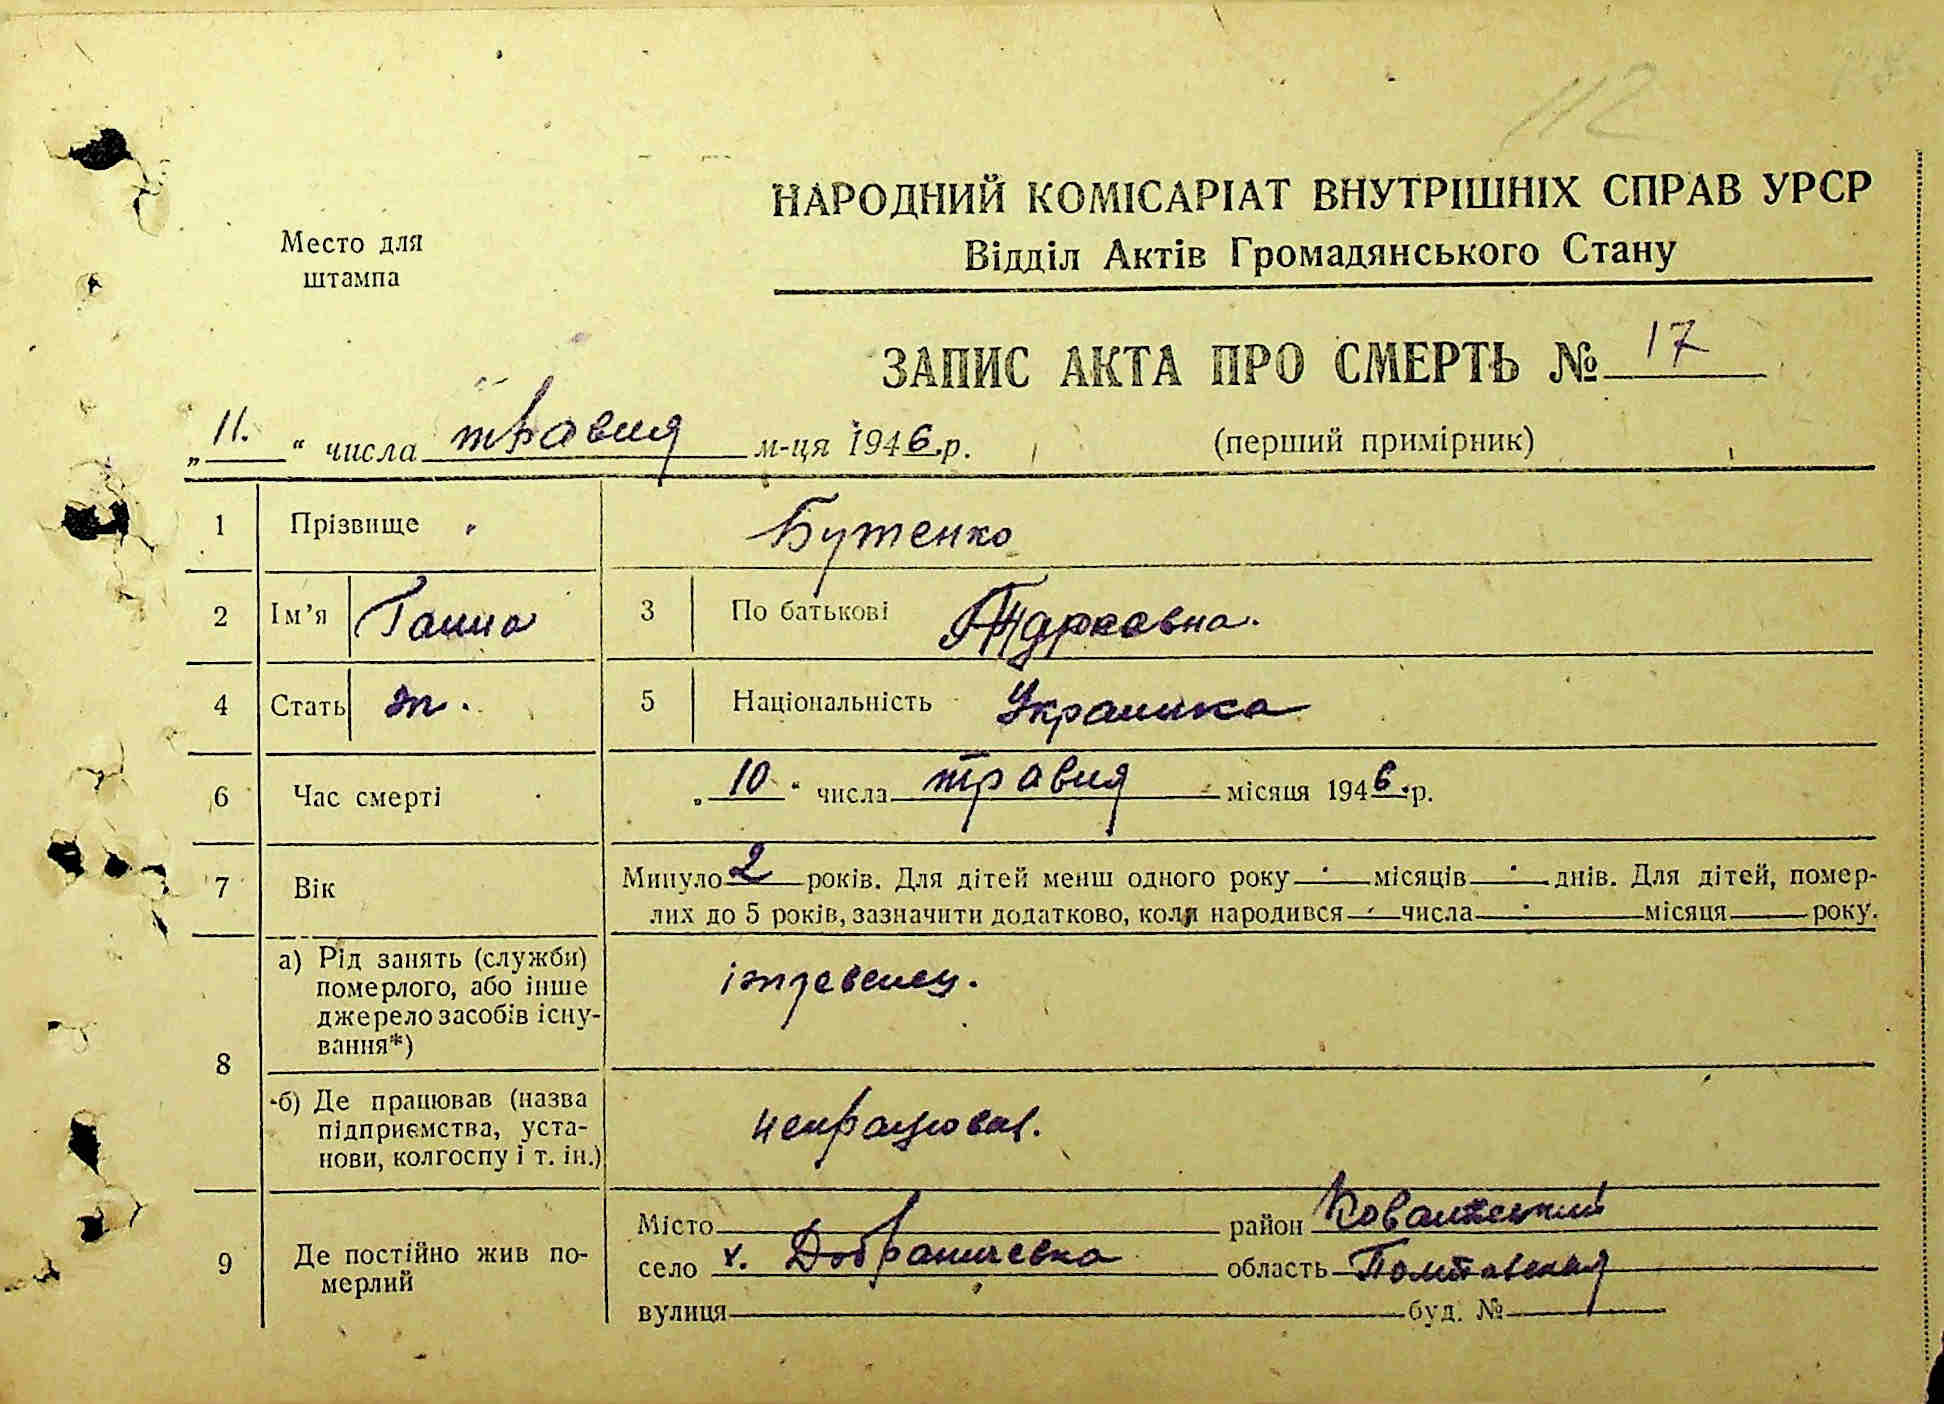 112
НАРОДНИЙ КОМІСАРІАТ ВНУТРІШНІХ СПРАВ УРСР
Відділ Актів Громадянського Стану
Место для
штампа
ЗАПИС АКТА ПРО СМЕРТЬ № 17
„11.“ числа травня м-ця 1946.р.
(перший примірник)
1 Прізвище Бутенко
2 Ім'я Ганна 3 По батькові
4 Стать ж. 5 Національність Украинка
6 Час смерті „10“ числа травня місяця 1946.р.
7 Вік Минуло 2 років. Для дітей менш одного року — місяців — днів. Для дітей, помер-
лих до 5 років, зазначити додатково, коли народився — числа — місяця — року.
8 а) Рід занять (служби)
померлого, або інше
джерело засобів існу-
вання*)
іждевенец.
б) Де працював (назва
підприємства, уста-
нови, колгоспу і т. ін.)
непрацювал.
9 Де постійно жив по-
мерлий
Місто район
село х. Добраничевка область Полтавская
вулиця буд. №